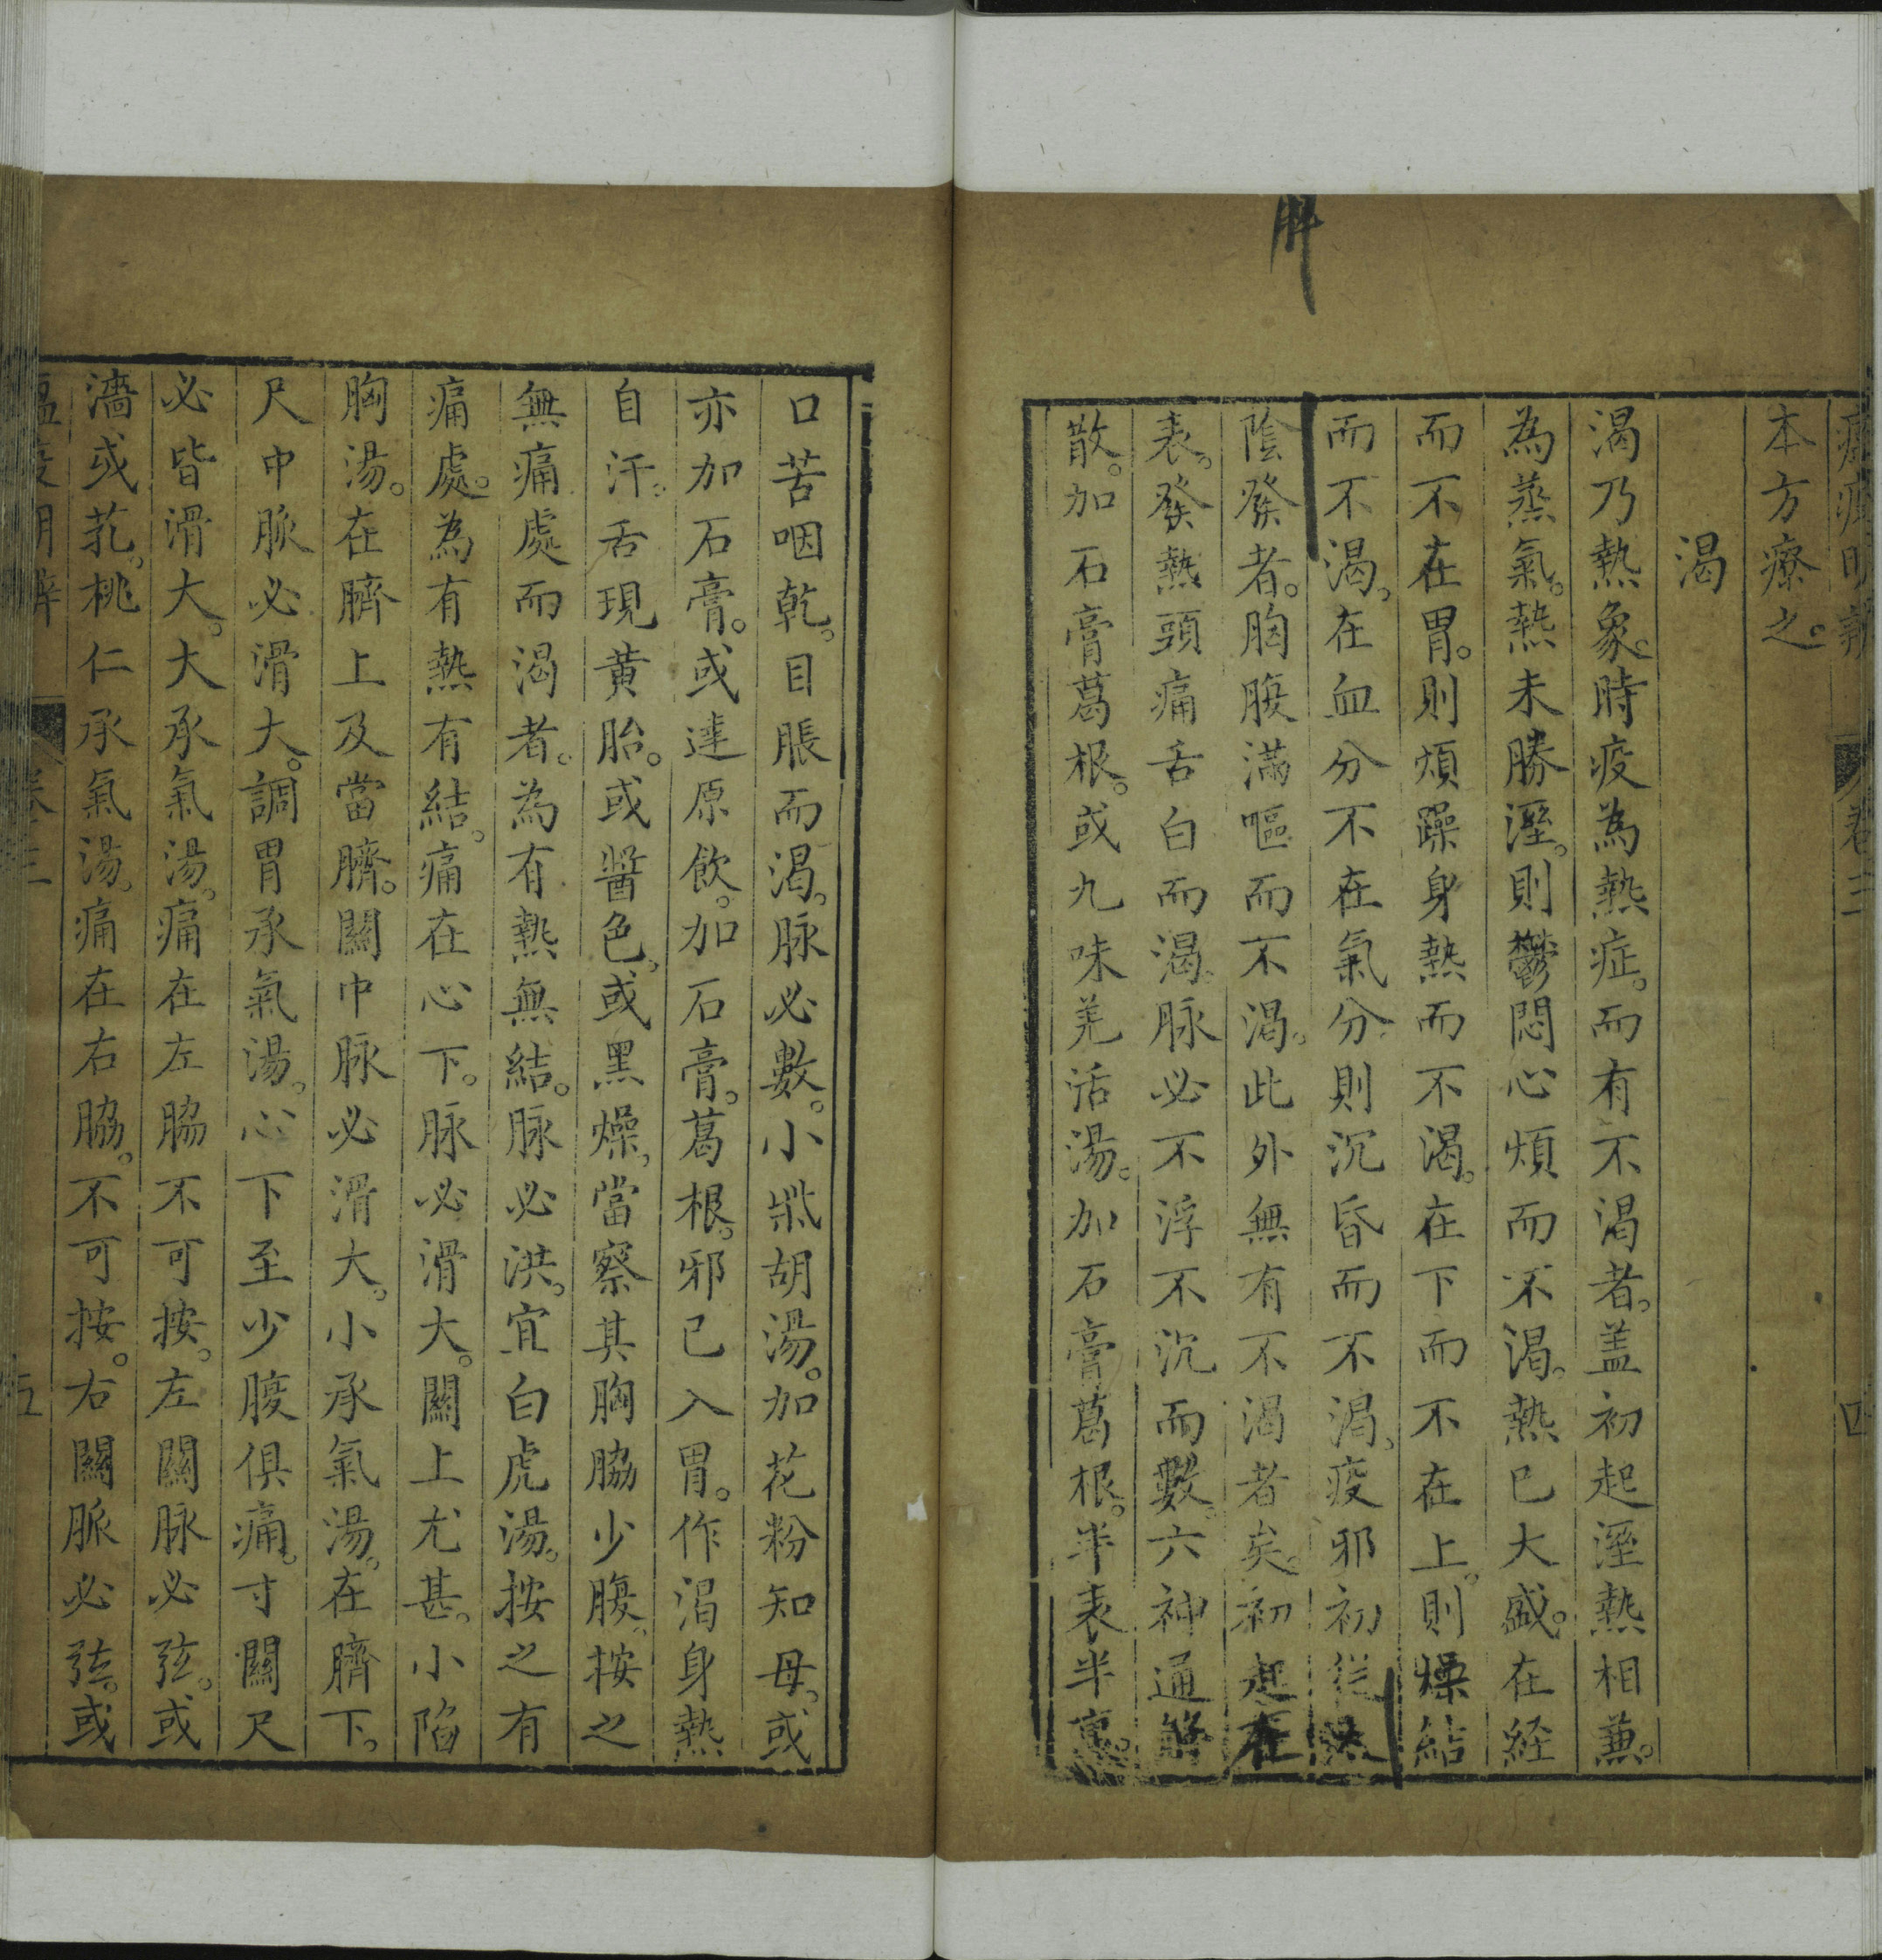 解
本方療之。
渴
渴乃熱象。時疫為熱症。而有不渴者。盖初起溼熱相兼。
為蒸氣。熱未勝溼。則鬱悶心煩而不渴。熱已大盛。在経
而不在胃。則煩躁身熱而不渴。在下而不在上。則燥結
而不渴。在血分不在氣分。則沉昏而不渴。疫邪初從
陰發者。胸腹滿嘔而不渴。此外無有不渴者矣。初起在
表。發熱頭痛舌白而渴。脉必不浮不沉而數。六神通解
散。加石膏葛根。或九味羌活湯。加石膏葛根。半表半裏。
口苦咽乾。目脹而渴。脉必數。小柴胡湯。加花粉知母。或
亦加石膏。或達原飲。加石膏。葛根。邪已入胃。作渴身熱
自汗。舌現黄胎。或醬色。或黑燥。當察其胸脇少腹。按之
無痛處而渴者。為有熱無結。脉必洪。宜白虎湯。按之有
痛處。為有熱有結。痛在心下。脉必滑大。關上尤甚。小陷
胸湯。在臍上及當臍。關中脉必滑大。小承氣湯。在臍下。
尺中脈必滑大。調胃承氣湯。心下至少腹俱痛。寸關尺
必皆滑大。大承氣湯。痛在左脇不可按。左關脉必弦。或
濇或芤。桃仁承氣湯。痛在右脇。不可按。右關脈必弦。或